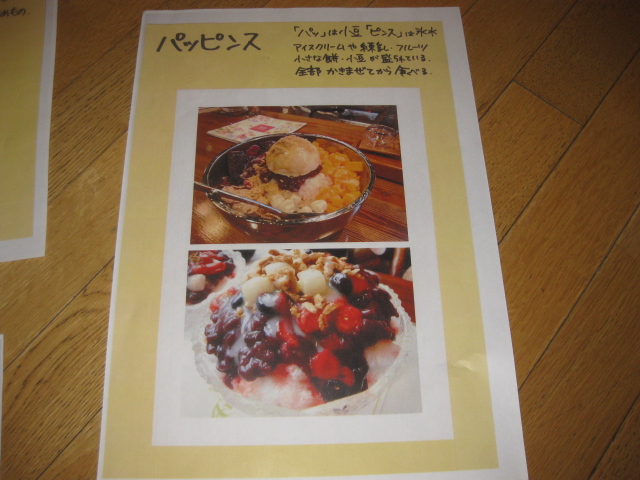 パッピンス
「パッ」は小豆「ピンス」は氷水
アイスクリームや練乳、フルーツ
小さな餅、小豆が盛られている。
全部かきまぜてから食べる。